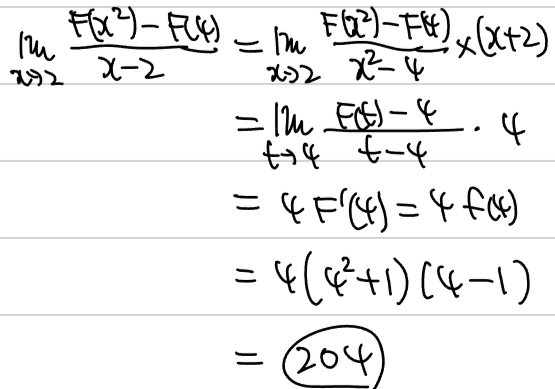 lim_{x→2} (F(x²)-F(4))/(x-2) = lim_{x→2} (F(x²)-F(4))/(x²-4) ×(x+2)
= lim_{t→4} (F(t)-4)/(t-4) · 4
= 4F'(4) = 4f(4)
= 4(4²+1)(4-1)
= 204